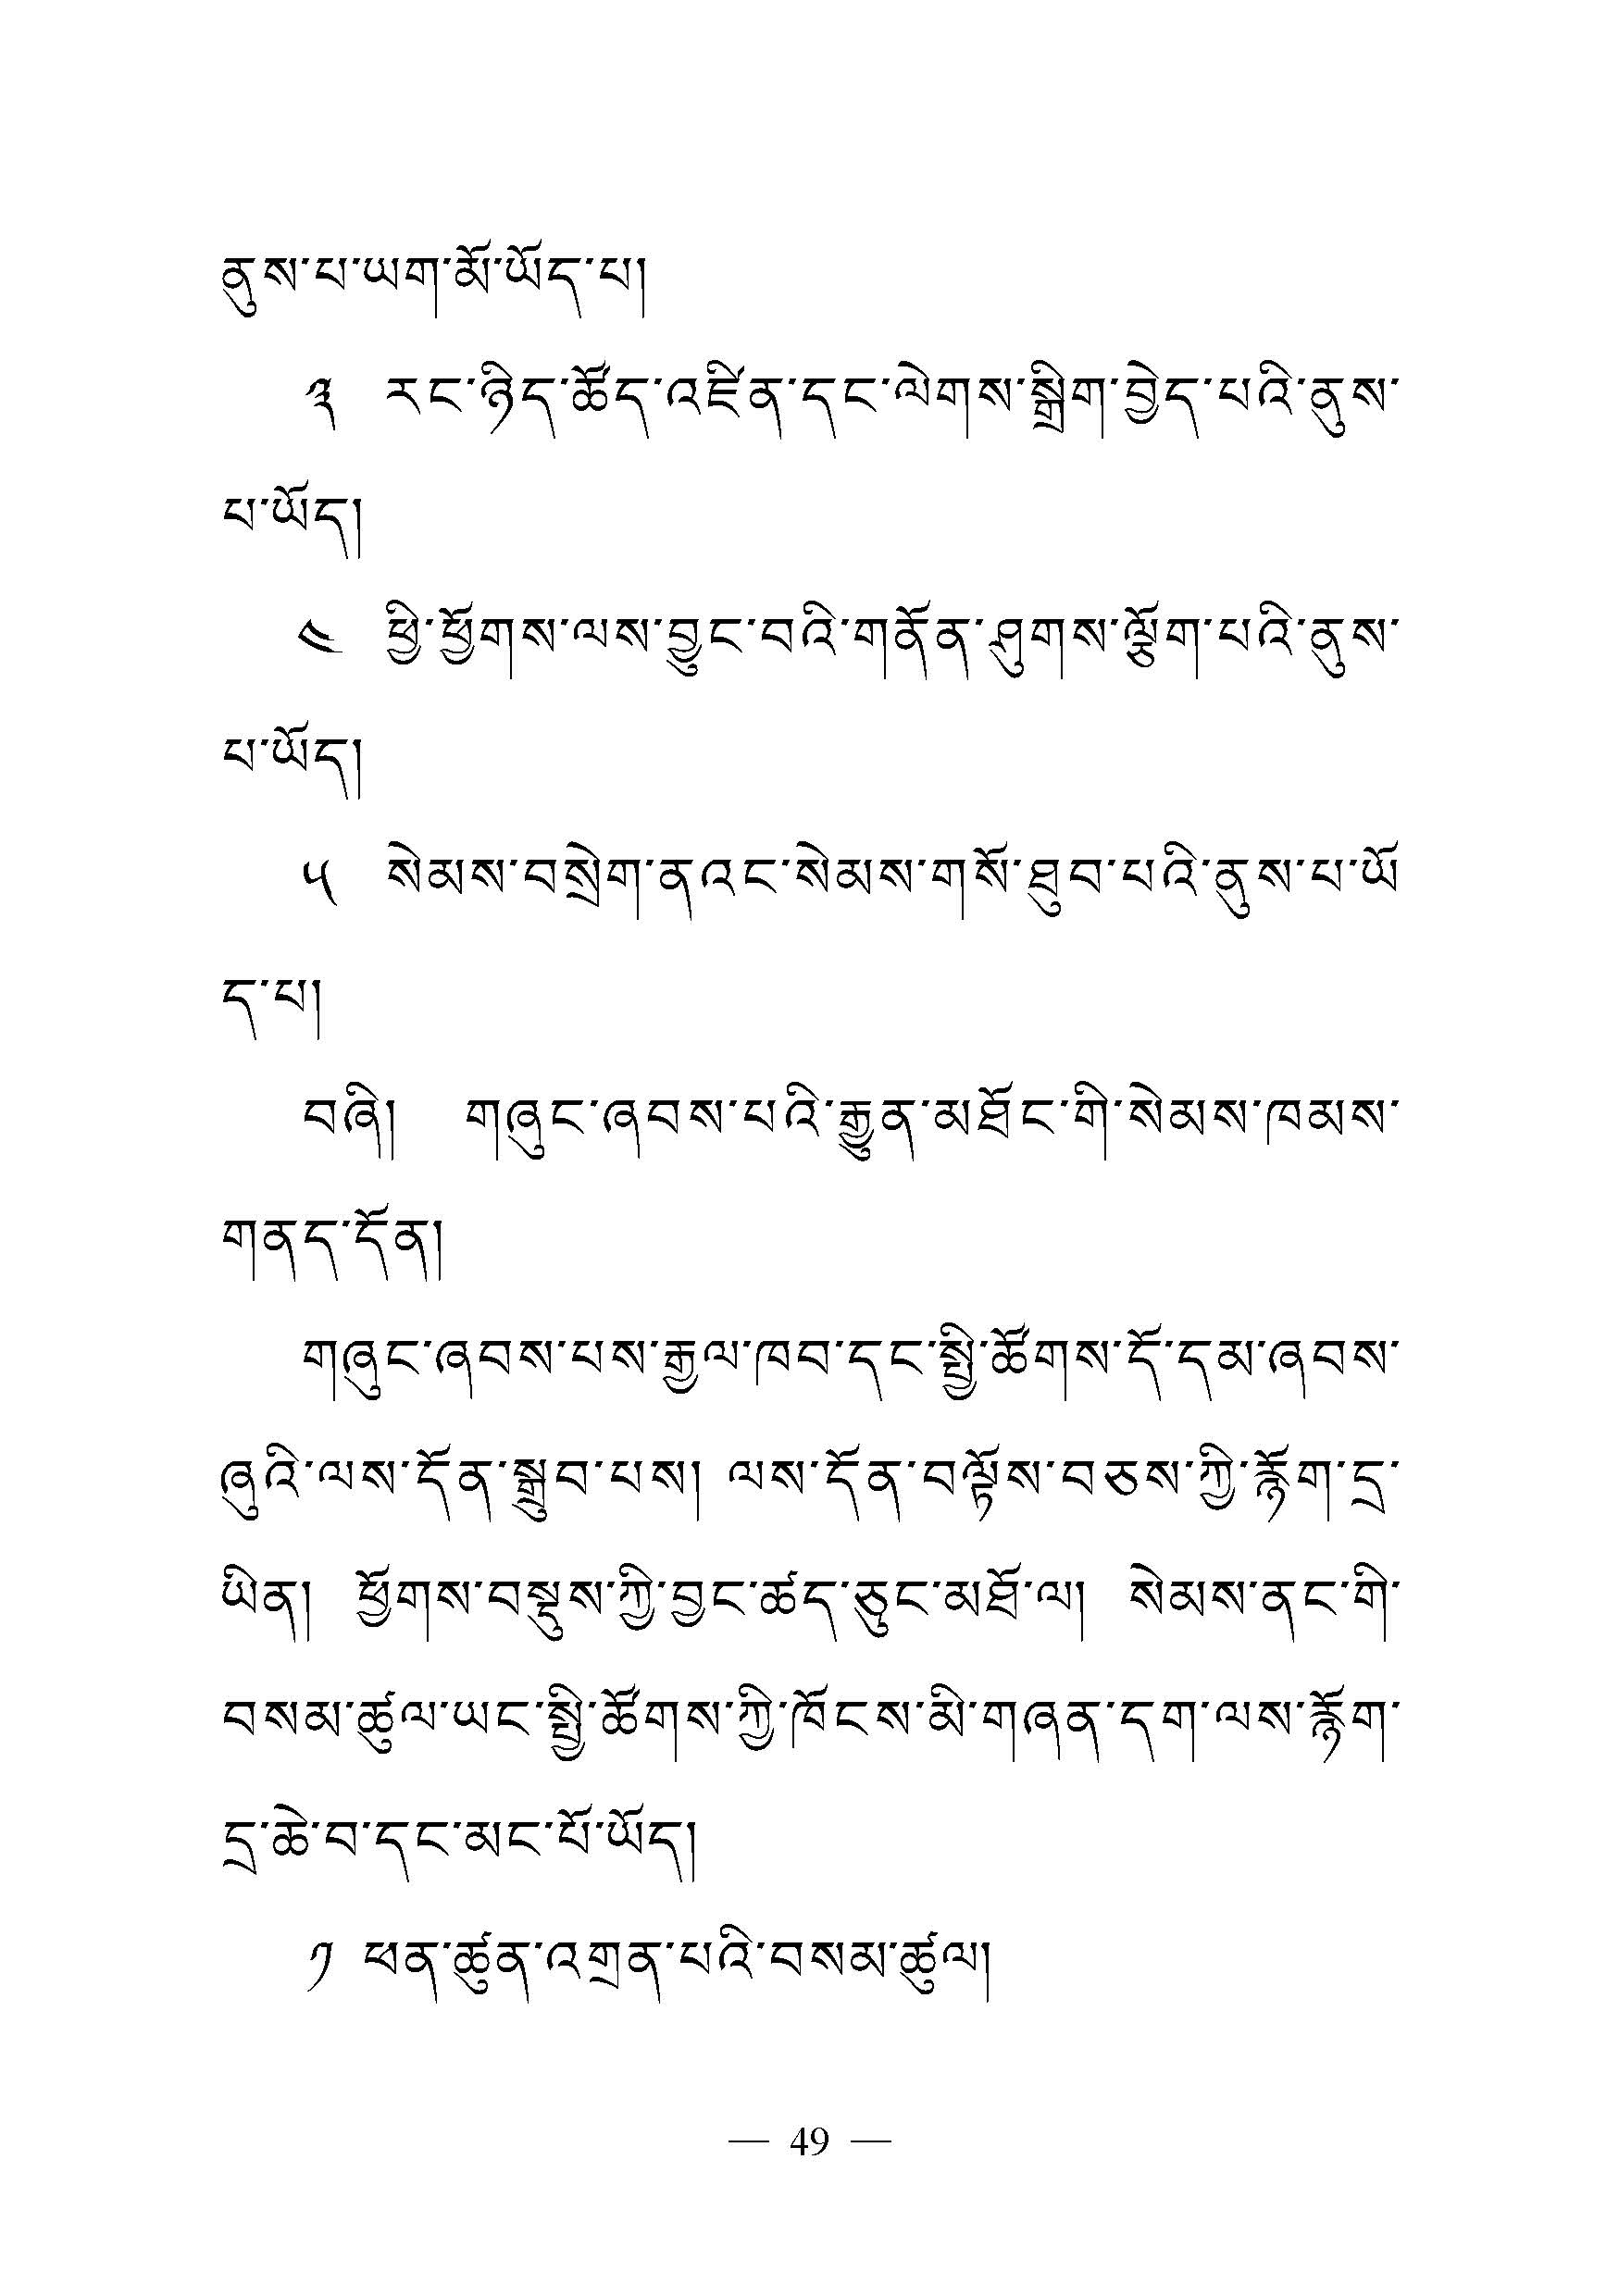 ནུས་པ་ཡག་མོ་ཡོད་པ།
༣ རང་ཉིད་ཚོད་འཛིན་དང་ལེགས་སྒྲིག་བྱེད་པའི་ནུས་
པ་ཡོད།
༤ ཕྱི་ཕྱོགས་ལས་བྱུང་བའི་གནོན་ཤུགས་ལྡོག་པའི་ནུས་
པ་ཡོད།
༥ སེམས་བསྲེག་ནའང་སེམས་གསོ་ཐུབ་པའི་ནུས་པ་ཡོ
ད་པ།
བཞི། གཞུང་ཞབས་པའི་རྒྱུན་མཐོང་གི་སེམས་ཁམས་
གནད་དོན།
གཞུང་ཞབས་པས་རྒྱལ་ཁབ་དང་སྤྱི་ཚོགས་དོ་དམ་ཞབས་
ཞུའི་ལས་དོན་སྒྲུབ་པས། ལས་དོན་བལྟོས་བཅས་ཀྱི་རྙོག་དྲ་
ཡིན། ཕྱོགས་བསྡུས་ཀྱི་བྱང་ཚད་ཅུང་མཐོ་ལ། སེམས་ནང་གི་
བསམ་ཚུལ་ཡང་སྤྱི་ཚོགས་ཀྱི་ཁོངས་མི་གཞན་དག་ལས་རྙོག་
དྲ་ཆེ་བ་དང་མང་པོ་ཡོད།
༡ ཕན་ཚུན་འགྲན་པའི་བསམ་ཚུལ།
— 49 —